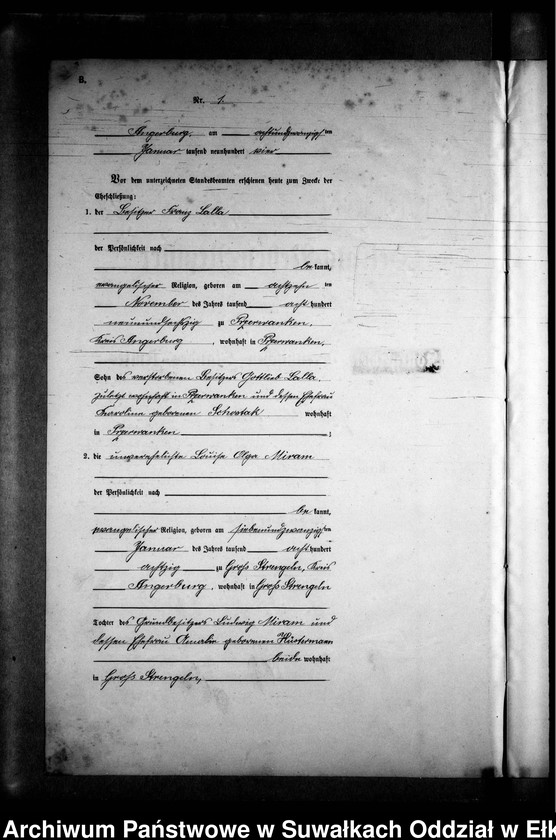 B.
Nr. 1.
Angerburg, am achtundzwanzigsten
Januar tausend neunhundert vier
Vor dem unterzeichneten Standesbeamten erschienen heute zum Zwecke der
Eheschließung:
1. der Besitzer Franz Lalla
der Persönlichkeit nach
be kannt,
evangelischer Religion, geboren am achtzehn ten
November des Jahres tausend acht hundert
neunundsechzig zu Przerwanken,
Kreis Angerburg, wohnhaft in Przerwanken,
Sohn des verstorbenen Besitzers Gottlieb Lalla,
zuletzt wohnhaft in Przerwanken und dessen Ehefrau
Karoline geborenen Schostak wohnhaft
in Przerwanken ;
2. die unverehelichte Louise Olga Miram
der Persönlichkeit nach
be kannt,
evangelischer Religion, geboren am siebenundzwanzigsten
Januar des Jahres tausend acht hundert
achtzig zu Groß Strengeln, Kreis
Angerburg, wohnhaft in Groß Strengeln
Tochter des Grundbesitzers Ludwig Miram und
dessen Ehefrau Amalie geborenen
beide wohnhaft
in Groß Strengeln,
Archiwum Państwowe w Suwałkach Oddział w Ełk